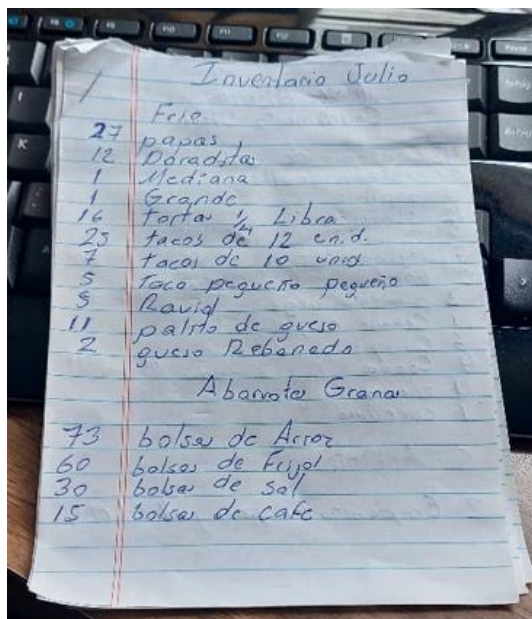 Inventario Julio
Frio
27 papas
12 Doraditas
1 Mediana
1 Grande
16 Torta 1/4 Libra
25 tacos de 12 en.d.
7 tacos de 10 unid
5 Taco pegueño pegueño
5 Raviol
11 palito de gueso
2 gueso Rebanado
Abarrotes Granos
73 bolsas de Arroz
60 bolsas de Frijol
30 bolsas de sal
15 bolsas de cafe